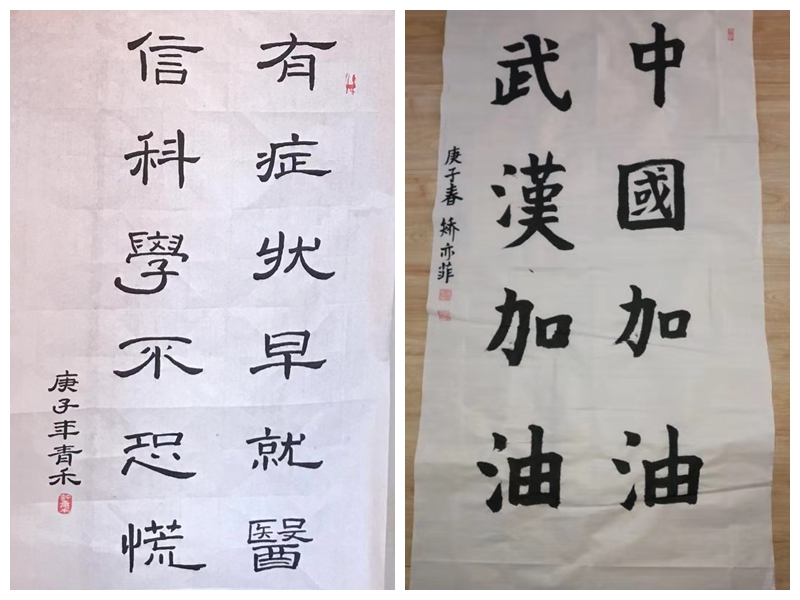 有症状早就醫
信科學不恐慌
庚子年青禾
中國加油
武漢加油
庚子春 矫亦菲